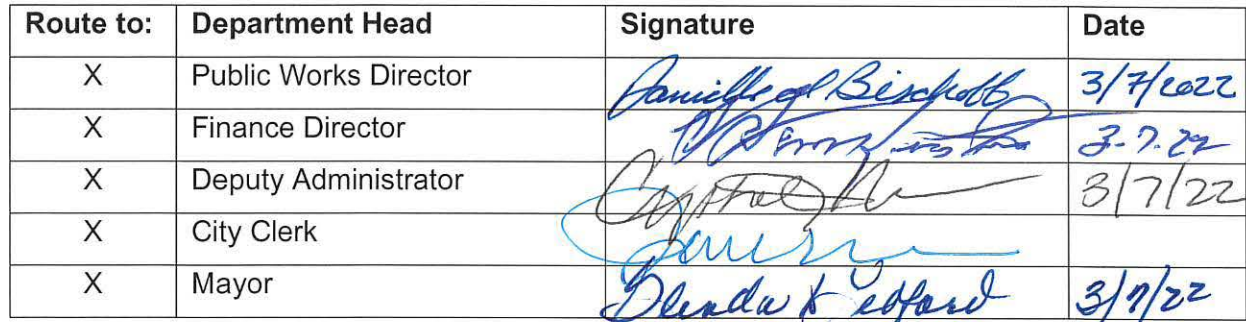 Route to: Department Head Signature Date
X Public Works Director Bischoff 3/7/2022
X Finance Director 3.7.22
X Deputy Administrator Crystal 3/7/22
X City Clerk
X Mayor 3/7/22